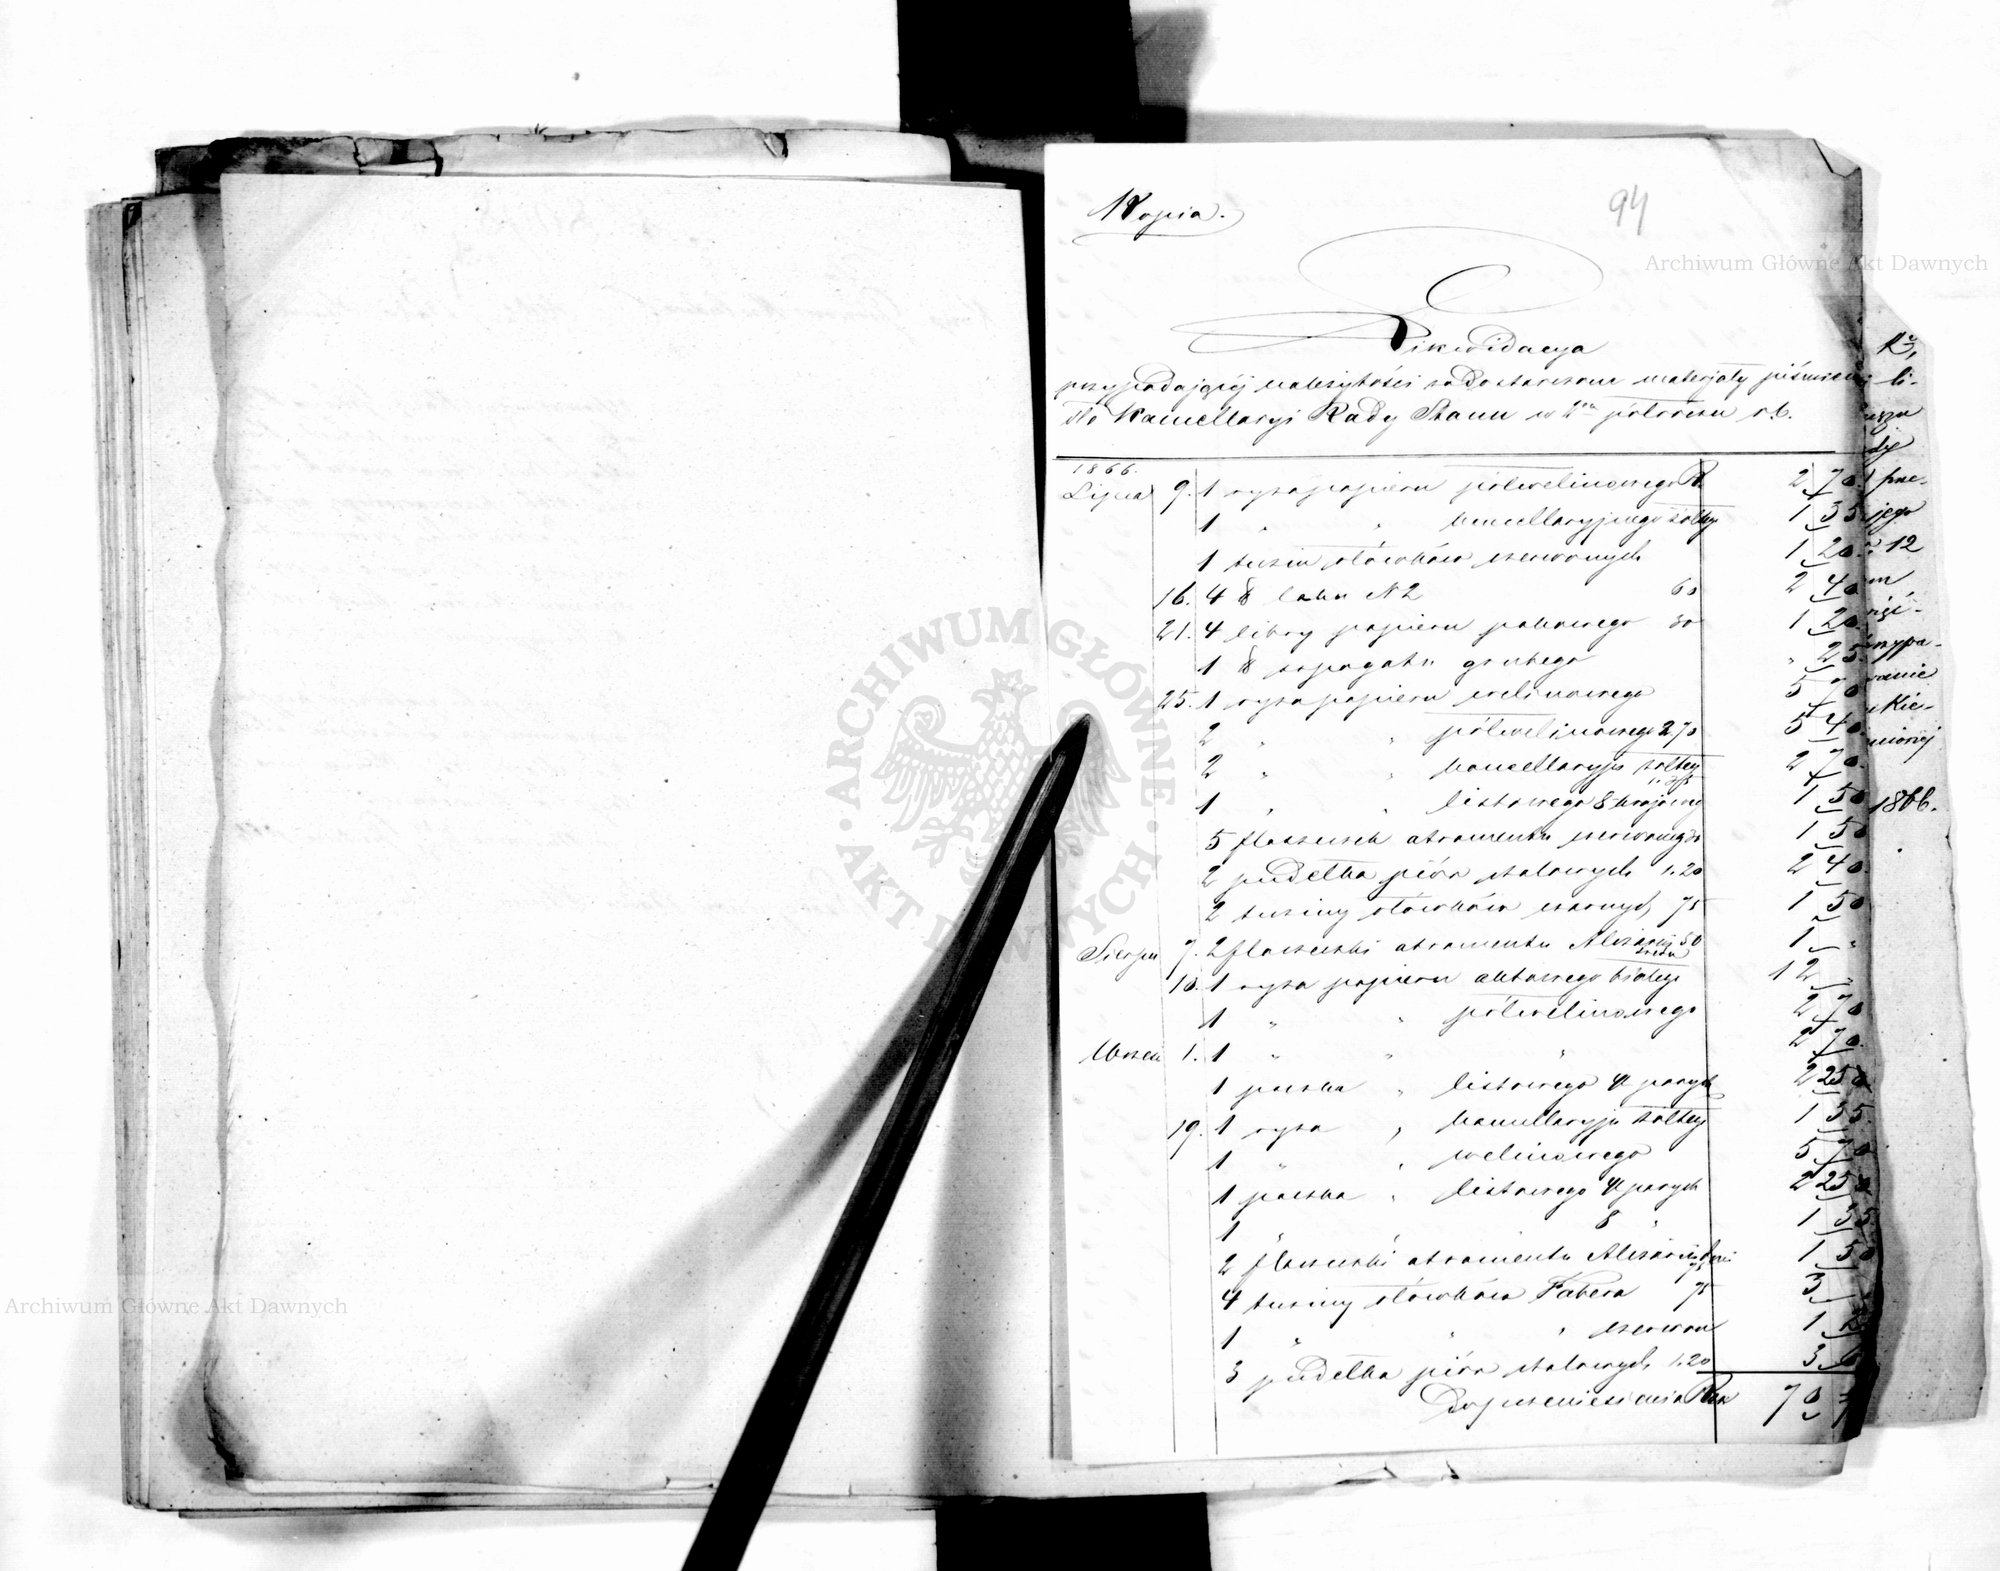 Kopia.
94
Archiwum Główne Akt Dawnych
Likwidacya
przypadającéj należytości za dostarczone materjały piśmienne
dla Kancellaryi Rady Stanu w 2m półroczu r.b.
1866.
Lipca 9. 1 ryza papieru półwelinowego R 2 70
1 " " kancellaryjnego żółteg 1 35
1 tuzin ołówków czerwonych 1 20
16. 4 ℔ laku N 2 60 2 40
21. 4 libry papieru pakowego 30 1 20
1 ℔ szpagatu grubego " 25
25. 1 ryza papieru welinowego 5 70
2 " " półwelinowego 2 70 5 40
2 " " kancellaryjn żółteg 1.35 2 70
1 " " listowego 8 krajowej 1 50
5 flaszeczek atramentu czerwoneg 30 1 50
2 pudełka piór stalowych 1.20 2 40
2 tuziny ołówków czarnych 75 1 50
Sierpn 7. 2 flaszeczki atramentu Alizarin 50 1 "
10. 1 ryza papieru aktowego białeg 12 "
1 " " półwelinowego 2 70
Wrześn 1. 1 " " " 2 70
1 paczka " listowego 4 paryzk 2 25
19. 1 ryza " kancellaryjn żółteg 1 35
1 " " welinowego 5 70
1 paczka " listowego 4 paryzk 2 25
1 " " 8 " 1 35
2 flaszeczki atramentu Alizarin 75 1 50
4 tuziny ołówków Fabera 75 3
1 " " " czerwon 1 2
3 pudełka piór stalowych 1.20 3 6
Do przeniesienia Rsr 70
li-
dy
jego
12
1866.
ARCHIWUM GŁÓWNE · AKT DAWNYCH ·
Archiwum Główne Akt Dawnych